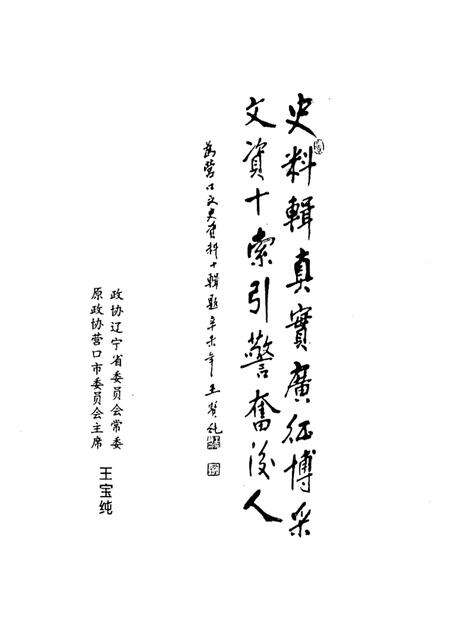 史料輯真實廣征博采
文資十索引警奮後人
為营口文史資料十輯題辛未年王寶纯
政协辽宁省委员会常委
原政协营口市委员会主席
王宝纯